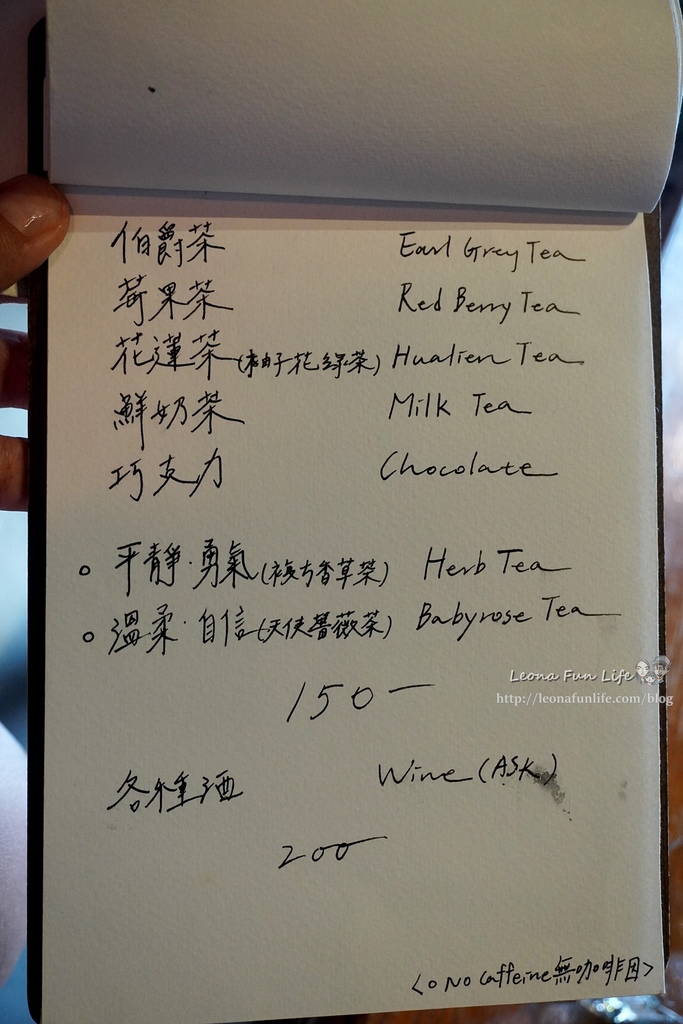 伯爵茶 Earl Grey Tea
莓果茶 Red Berry Tea
花蓮茶(柚子花綠茶) Hualien Tea
鮮奶茶 Milk Tea
巧克力 Chocolate
○ 平靜·勇氣(複方香草茶) Herb Tea
○ 溫柔·自信(天使薔薇茶) Babyrose Tea
Leona Fun Life
http://leonafunlife.com/blog
150-
各種酒 Wine (ASK)
200
<○ No Caffeine無咖啡因>